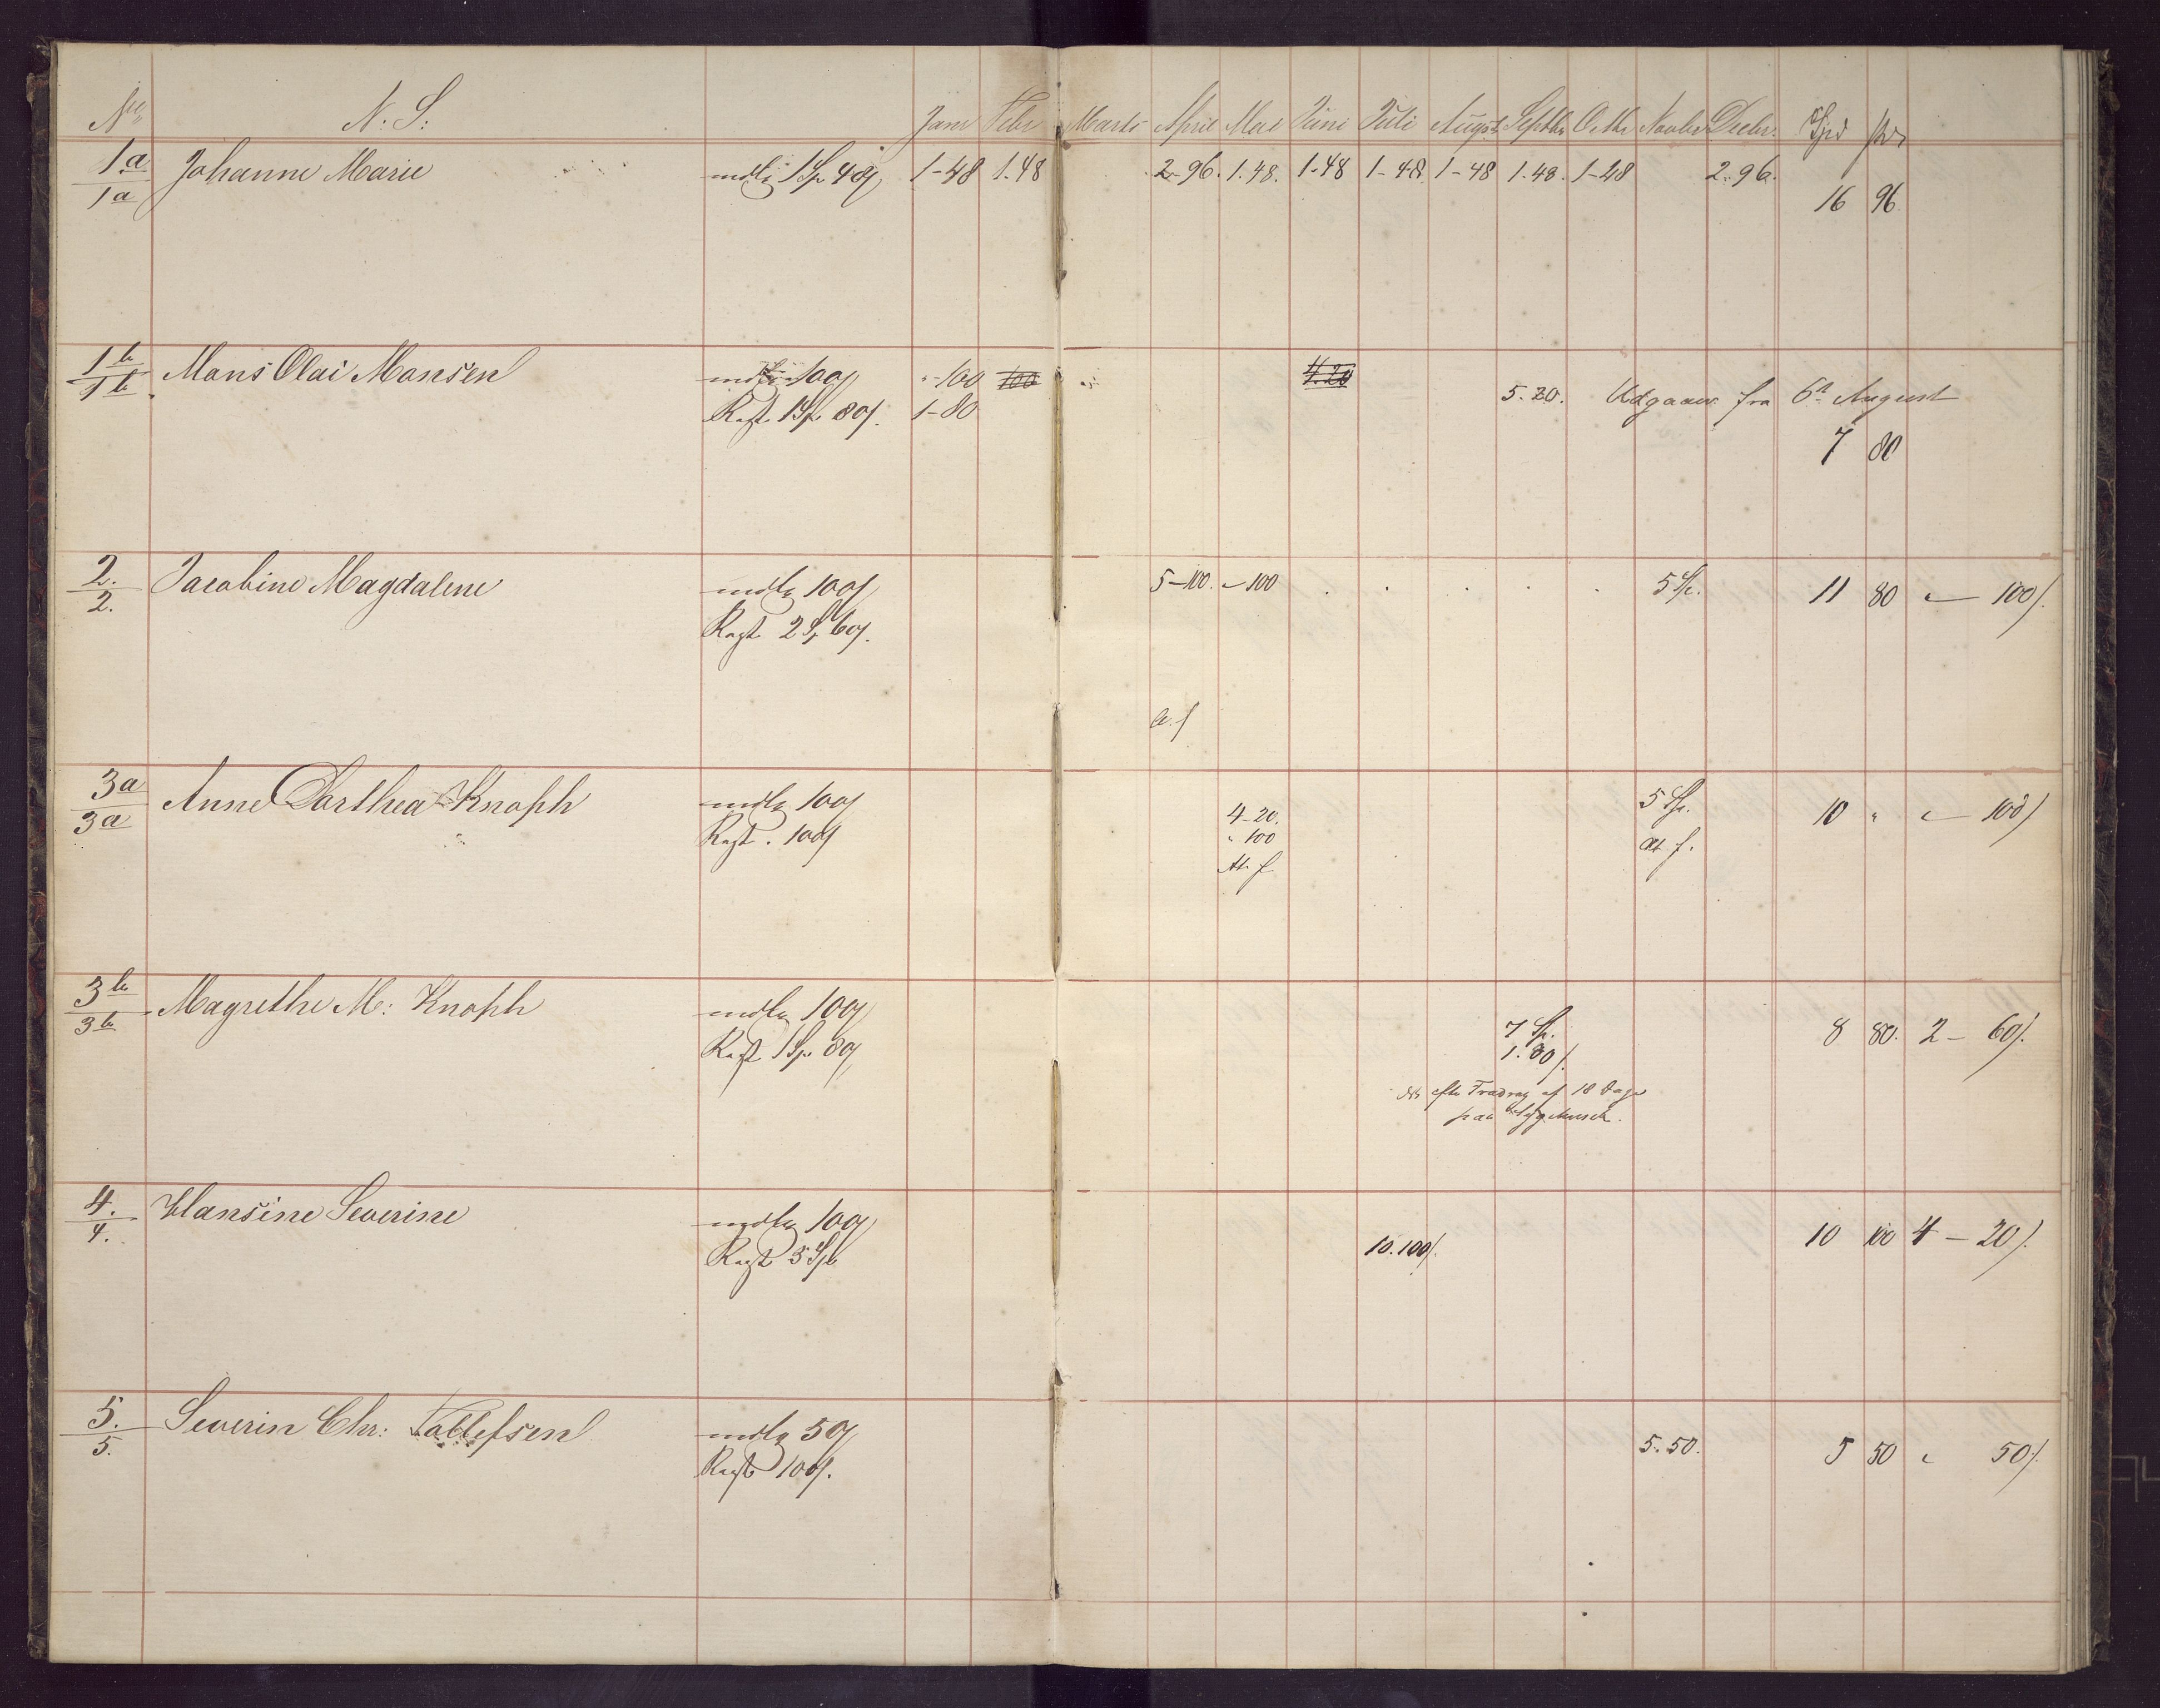 No N. S: Janr Febr Marts April Mai Juni Juli Augst Septbr Octbr Novbr Decbr. Spd
1.a Johanne Marie mdlg 1 Sp 48 1-48 1.48 2-96. 1.48. 1.48 1-48. 1-48 1.48. 1-48 2.96.
1a 16 96
1b Mons Olai Monsen mdlg 100 "-100 100 4.20
1b Rest 1 Sp 80. 1-80 5.20. Udgaaer fra 6te August
7 80
2. Jacobine Magdalene mdlg 100 5-100. "-100 5 Sp. 11 80 " — 100
2. Rest 2 Sp 60.
a. f
3a Anne Dorthea Knoph mdlg 100 4-20. 5 Sp. 10 " " — 100
3a Rest. 100 " 100 at f.
At. f.
3b Magrethe M: Knoph mdlg 100 7 Sp. 8 80. 2 — 60.
3b Rest 1 Sp 80 1.80
efter Fradrag af 18 Dage
paa
4. Hansine Severine mdlg 100
4. Rest 3 Sp 10.100 10 100 4 — 20.
5. Severin Chr: Tollefsen mdlg 50 5.50. 5 50 " 50
5. Rest 100.